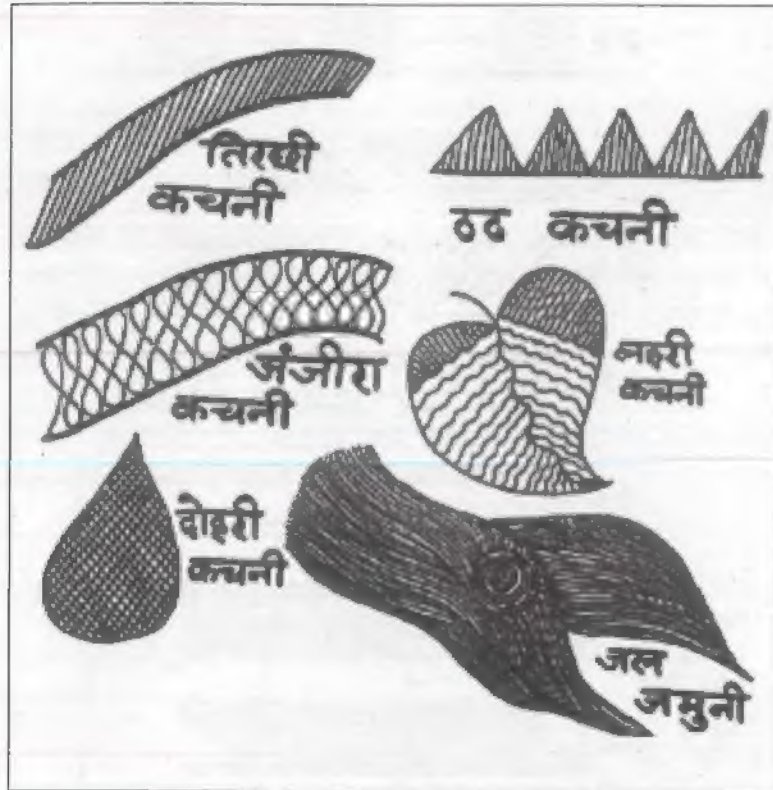 तिरछी
कचनी
ठठ कचनी
जंजीरा
कचनी
लहरी
कचनी
दोहरी
कचनी
जल
जमुनी